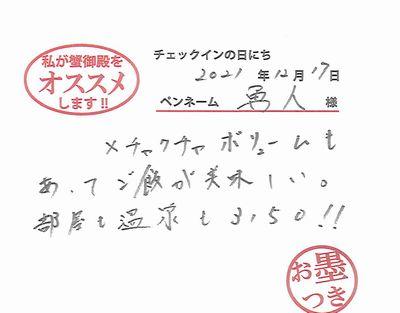 私が蟹御殿を
オススメ
します!!
チェックインの日にち
2021年12月17日
ペンネーム 勇人 様
メチャクチャボリュームも
あってご飯が美味しい。
部屋も温泉も3,50!!
お墨
つき